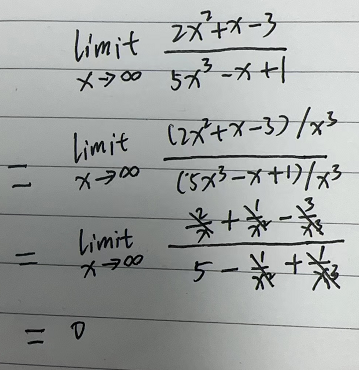 limit x→∞ (2x²+x-3)/(5x³-x+1)
= limit x→∞ ((2x²+x-3)/x³)/((5x³-x+1)/x³)
= limit x→∞ (2/x + 1/x² - 3/x³)/(5 - 1/x² + 1/x³)
= 0